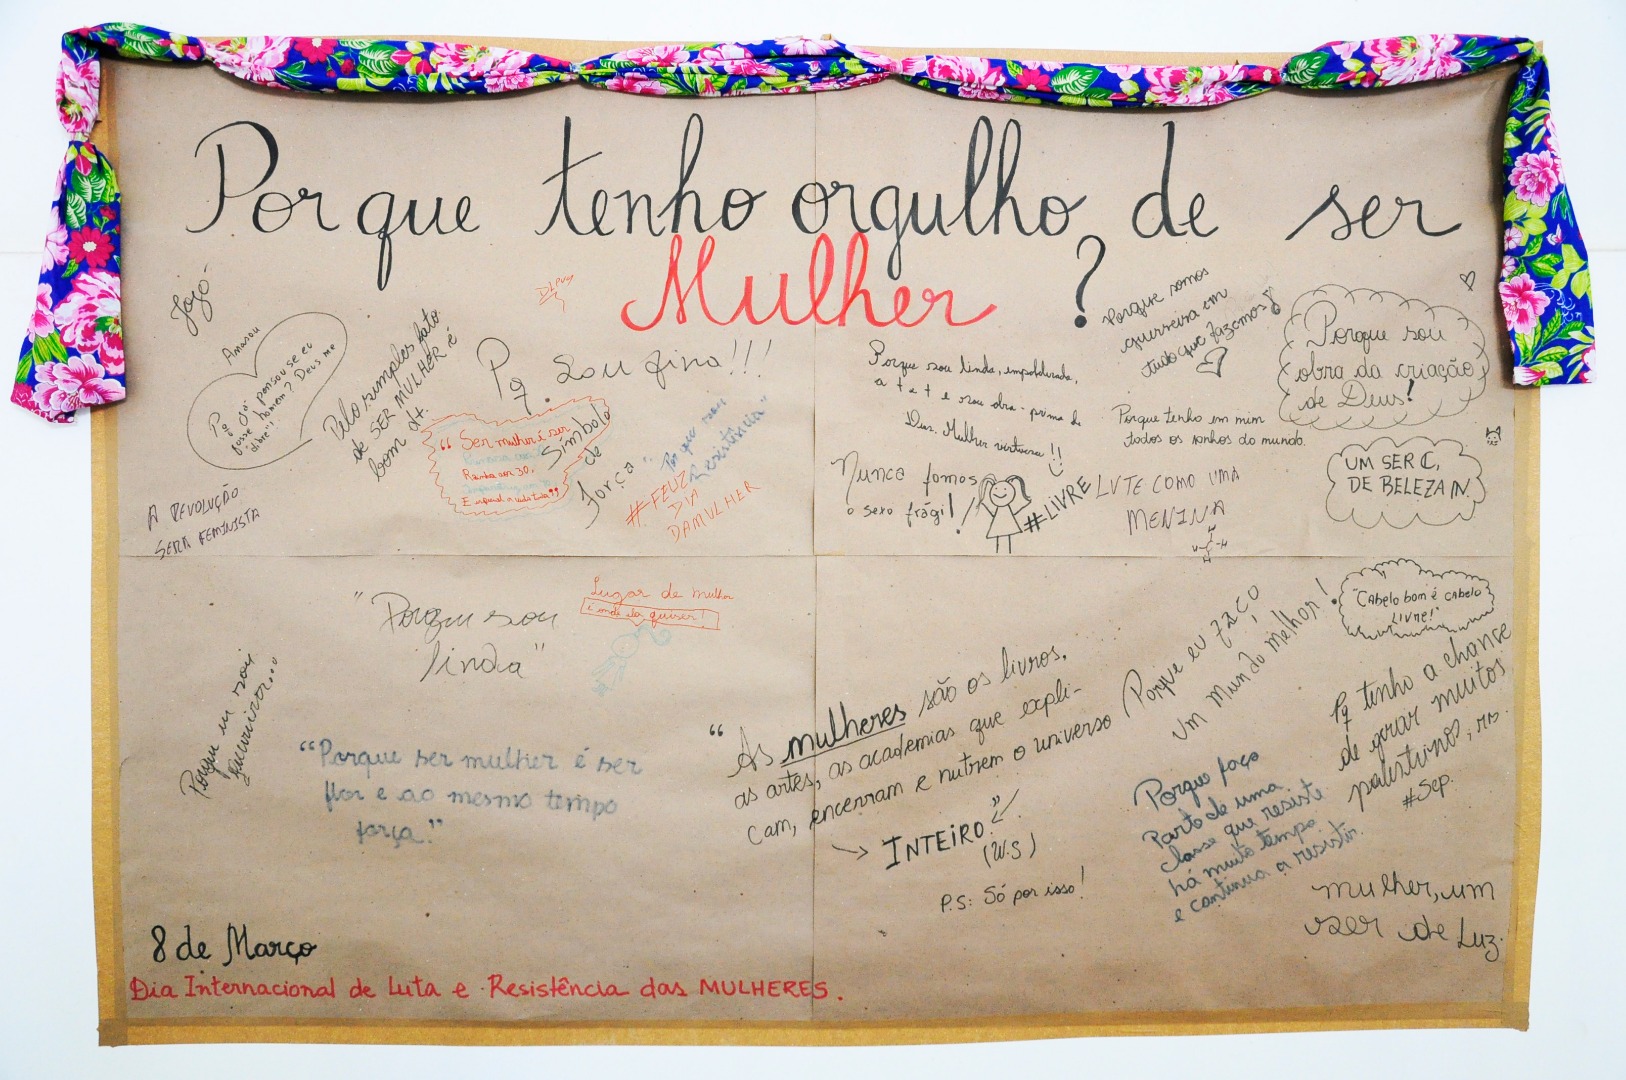 Porque tenho orgulho de ser
Mulher ?
Jojô
Amasou
Pq já pensou se eu
fosse homem? Deus me
dibre"!
Pelo simples fato
de SER MULHER é
bom d+.
Pq Sou fina!!!
"Ser mulher é ser
Rainha aos 30,
Símbolo
de
força
"Porque sou
Resistência"
#FELIZ
DIA
DAMULHER
A REVOLUÇÃO
SERÁ FEMINISTA
Porque sou linda, empoderada,
a t e t e sou obra-prima de
Deus. Mulher virtuosa!!
Porque somos
guerreira em
tudo que fazemos!
Porque sou
obra da criação
de Deus!
Porque tenho em mim
todos os sonhos do mundo.
Nunca fomos
o sexo frágil!
#LIVRE
LUTE COMO UMA
MENINA
UM SER C,
DE BELEZA IN.
"Porque sou
linda"
Lugar de mulher
é onde ela quiser!
"Cabelo bom é cabelo
Livre!"
Porque eu sou
guerreira...
"Porque ser mulher é ser
flor e ao mesmo tempo
força."
"As mulheres são os livros,
as artes, as academias que expli-
cam, encerram e nutrem o universo
INTEIRO."
(W.S)
P.S: Só por isso!
Porque eu faço
um mundo melhor!
Pq tenho a chanse
de gerar muitos
palestrinos, rs.
#Sep.
Porque faço
Parte de uma
classe que resiste
há muito tempo
e continua a resistir.
mulher, um
ser de Luz.
8 de Março
Dia Internacional de Luta e Resistência das MULHERES.